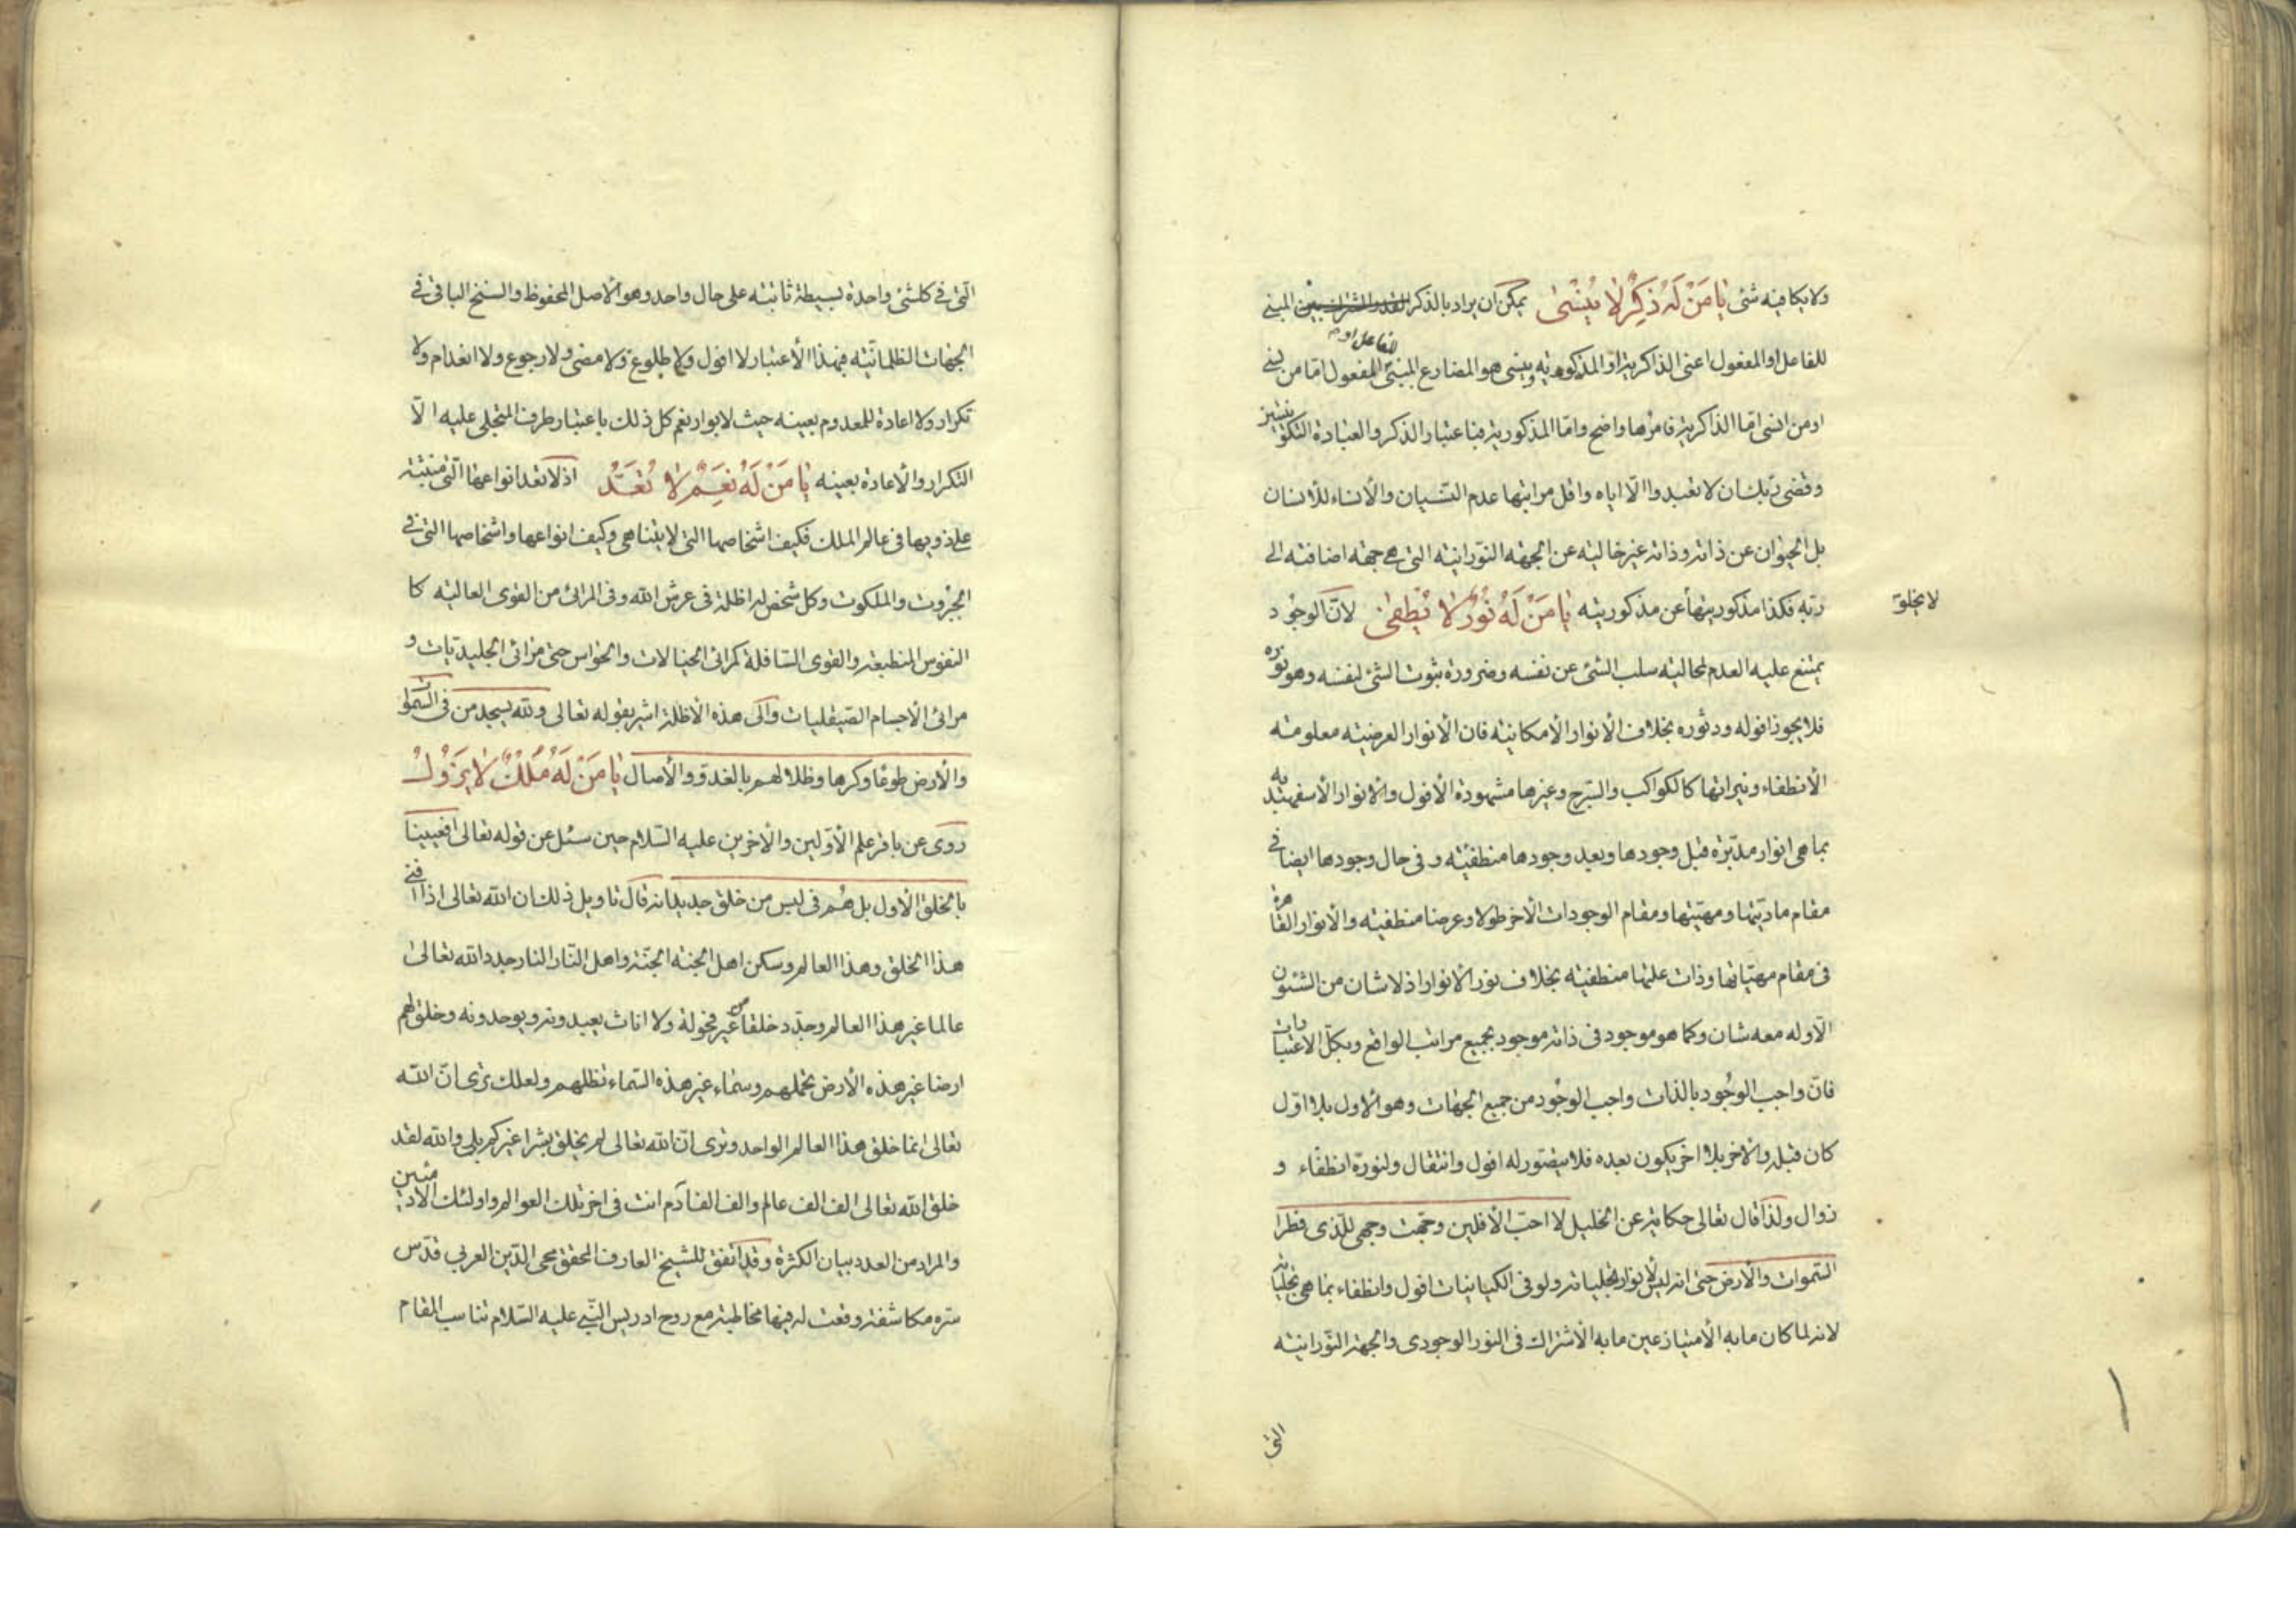 ولا يكافيه شئ يا مَنْ لَهُ ذِكْرٌ لا يُنْسىٰ يمكن ان يراد بالذكر المبنى
للفاعل او المفعول اعنى الذاكرية او المذكورية وينسى هو المضارع المبنى للمفعول امّا من نسى
للفاعل او
او من انسى امّا الذاكرية فامرها واضح وامّا المذكورية فباعتبار الذكر والعبادة التكوينية
وقضى ربّك ان لا تعبدوا الّا اياه واقل مراتبها عدم النسيان والأنساء للأنسان
بل الحيوان عن ذاته وذاته غير خالية عن الجهة النّورانية التى هى جهة اضافته الى
ربّه فكذا مذكوريتها عن مذكوريته يا مَنْ لَهُ نُورٌ لا يُطْفىٰ لانّ الوجود
لا يخلو
يمتنع عليه العدم لمحالية سلب الشئ عن نفسه وضرورة ثبوت الشئ لنفسه وهو نوره
فلا يجوز افوله ودثوره بخلاف الأنوار الأمكانية فان الأنوار العرضية معلومة
الأنطفاء ونيراتها كالكواكب والسّرج وغيرها مشهودة الأفول والأنوار الأسفهبدية
بما هى انوار مدبّرة قبل وجودها وبعد وجودها منطفئة وفى حال وجودها ايضا فى
مقام مادّيتها ومهيّتها ومقام الوجودات الأخر طولا وعرضا منطفية والأنوار القاهرة
فى مقام مهيّاتها وذات علتها منطفية بخلاف نور الأنوار اذ لا شان من الشئون
الّا وله معه شان وكما هو موجود فى ذاته موجود بجميع مراتب الواقع وبكلّ الاعتبارات
فانّ واجب الوجُود بالذات واجب الوجُود من جميع الجهات وهو الأول بلا اوّل
كان قبله والآخر بلا اخر يكون بعده فلا يتصّور له افول وانتقال ولنوره انطفاء و
زوال ولذا قال تعالى حكاية عن الخليل لا احبّ الأفلين وجّهت وجهى للّذى فطر
السّموات والأرض حتى انه ليس لأنوار تجلياته ولو فى الكيانيات افول وانطفاء بما هى تجلياته
لانه لما كان ما به الأمتياز عين ما به الأشتراك فى النور الوجودى والجهة النّورانية
التى
الّتى فى كلشئ واحدة بسيطة ثابتة على حال واحد وهو الأصل المحفوظ والسنخ الباقى فى
الجهات الظلمانيّة فبهذا الأعتبار لا افول ولا طلوع ولا مضى ولا رجوع ولا انعدام ولا
تكرار ولا اعادة للمعدوم بعينه حيث لا بوار نعم كل ذلك باعتبار طرف المتجلى عليه الّا
التكرار والأعادة بعينه يا مَنْ لَهُ نِعَمٌ لا تُعَدُّ اذ لا تعد انواعها الّتى منبثة
على ذويها فى عالم الملك فكيف اشخاصها التى لا يتناهى وكيف انواعها واشخاصها التى فى
الجبروت والملكوت وكل شخص له اظلة فى عرش الله وفى المرائى من القوى العالية كا
النفوس المنطبعة والقوى السّافلة كمرائى الخيالات والحواس حتى مرائى الجليديات و
مرائى الأجسام الصّيقليات والى هذه الأظلة اشير بقوله تعالى ولله يسجد من فى السّموات
والأرض طوعًا وكرها وظلالهم بالغدوّ والأصال يا مَنْ لَهُ مُلْكٌ لا يَزُولُ
روى عن باقر علم الأوّلين والآخرين عليه السّلام حين سئل عن قوله تعالى افعيينا
بالخلق الأول بل هُم فى لبس من خلق جديد انه قال تاويل ذلك ان الله تعالى اذا افنى
هذا الخلق وهذا العالم وسكن اهل الجنة الجنّة واهل النّار النار جدد الله تعالى
عالما غير هذا العالم وجدّد خلقا من غير فحولة ولا اناث يعبدونه ويوحدونه وخلق لهم
ارضا غير هذه الأرض تحملهم وسماء غير هذه السّماء تظلهم ولعلك ترى انّ الله
تعالى انما خلق هذا العالم الواحد وترى انّ الله تعالى لم يخلق بشرا غيركم بلى والله لقد
خلق الله تعالى الف الف عالم والف الف آدم انت فى اخر تلك العوالم واولئك الآدميين
والمراد من العدد بيان الكثرة وقد اتفق للشيخ العارف المحقق محى الدّين العربى قدّس
سّره مكاشفة وقعت له فيها مخاطبة مع روح ادريس النّبى عليه السّلام تناسب المقام